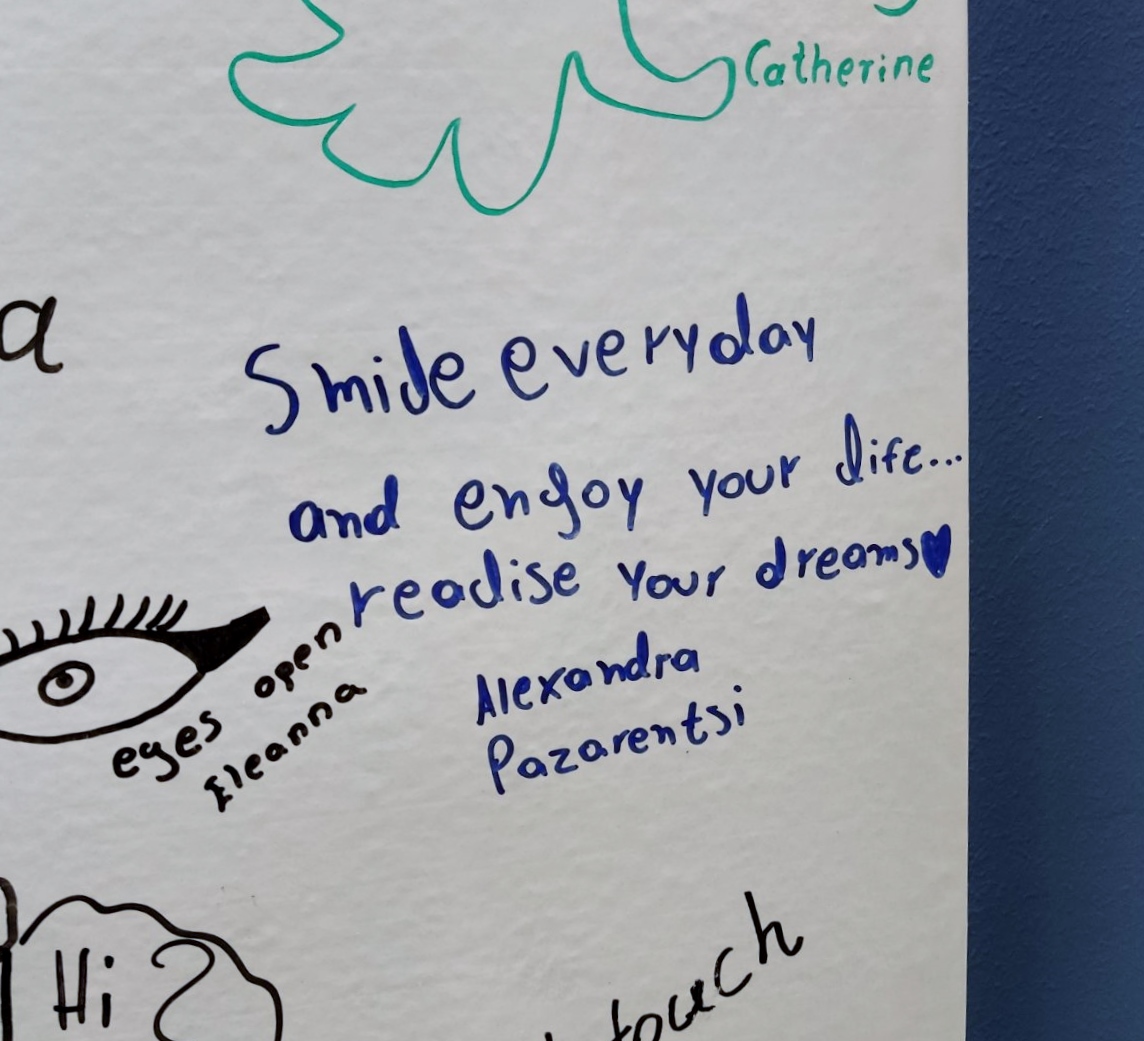 Catherine
a
Smile everyday
and enjoy your life...
realise your dreams♥
Alexandra
Pazarentsi
eyes open
Eleanna
Hi
touch